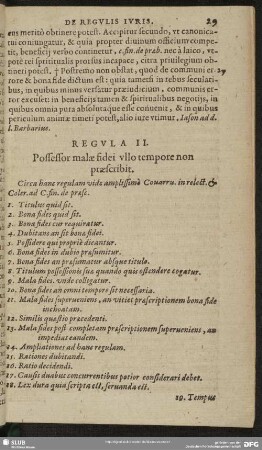 DE REGVLIS IVRIS. 29
ens meritò obtinere potest. Accipitur secundo, vt canonica-
tui coniungatur, & quia propter diuinum officium compe-
tit, beneficij verbo continetur, c. fin. de præb. nec à laico, vt-
potè rei spiritualis prorsus incapace, citra priuilegium ob-
tineri potest. † Postremo non obstat, quod de communi er- 19
rore & bona fide dictum est: quia tametsi in rebus seculari-
bus, in quibus minus versatur præiudicium, communis er-
ror excuset: in beneficijs tamen & spiritualibus negotijs, in
quibus omnia pura absolutaque esse conuenit, & in quibus
periculum animæ timeri potest, alio iure vtimur, Iason ad d.
l. Barbarius.
REGVLA II.
Possessor malæ fidei vllo tempore non
præscribit.
Circa hanc regulam vide amplissimè Couarru. in relect. &
Coler. ad C. fin. de præsc.
1. Titulus quid sit.
2. Bona fides quid sit.
3. Bona fides cur requiratur.
4. Dubitans an sit bona fidei.
5. Possidere qui propriè dicantur.
6. Bona fides in dubio præsumitur.
7. Bona fides an præsumatur absque titulo.
8. Titulum possessionis suæ quando quis ostendere cogatur.
9. Mala fides vnde colligatur.
10. Bona fides an omni tempore sit necessaria.
11. Mala fides superueniens, an vitiet præscriptionem bona fide
inchoatam.
12. Similis quæstio præcedenti.
13. Mala fides post completam præscriptionem superueniens, an
impediat eandem.
14. Ampliationes ad hanc regulam.
15. Rationes dubitandi.
16. Ratio decidendi.
17. Causis duabus concurrentibus potior considerari debet.
18. Lex dura quia scripta est, seruanda est.
19. Tempus
SLUB
DFG